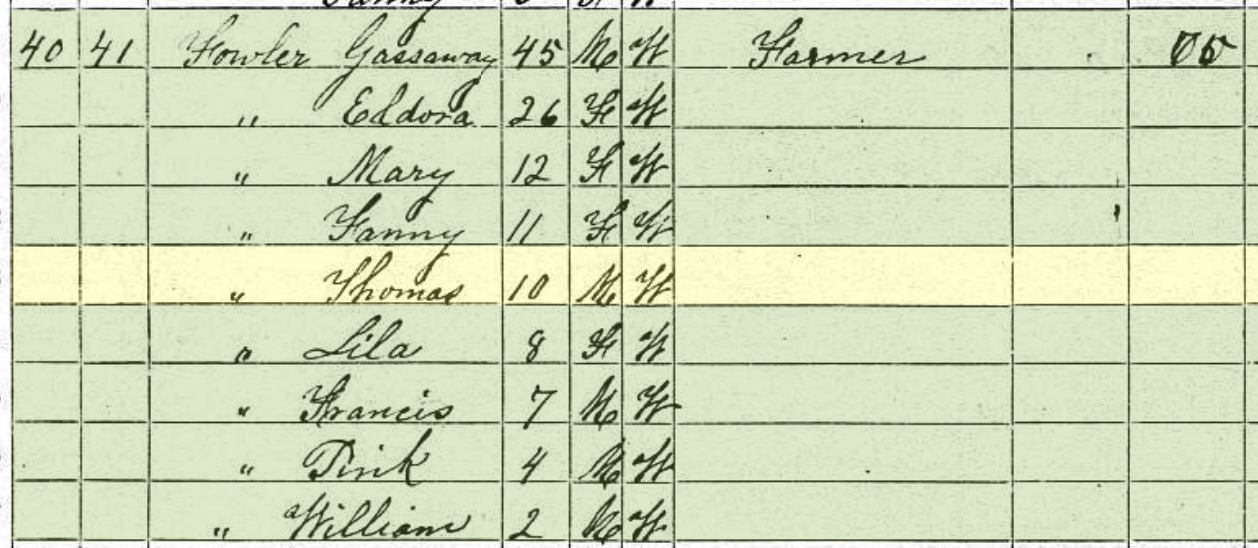 Fanny
40 41 Fowler Gassaway 45 M W Farmer
" Eldora 26 F W
" Mary 12 F W
" Fanny 11 F W
" Thomas 10 M W
" Lila 8 F W
" Francis 7 M W
" Pink 4 M W
" William 2 M W